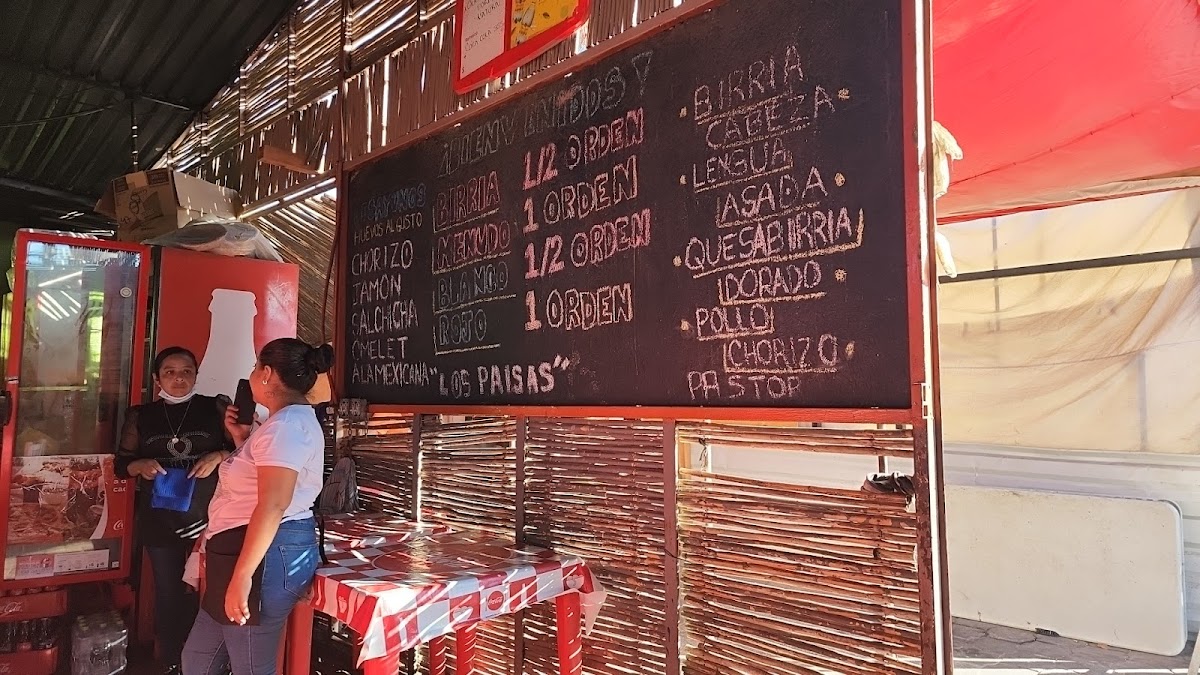 ¡BIENVENIDOS!
DESAYUNOS
HUEVOS AL GISTO
CHORIZO
JAMON
SALCHICHA
OMELET
ALAMEXICANA
BIRRIA
MENUDO
BLANCO
ROJO
1/2 ORDEN
1 ORDEN
1/2 ORDEN
1 ORDEN
"LOS PAISAS"
BIRRIA
CABEZA
LENGUA
ASADA
QUESABIRRIA
DORADO
POLLO
CHORIZO
PASTOR